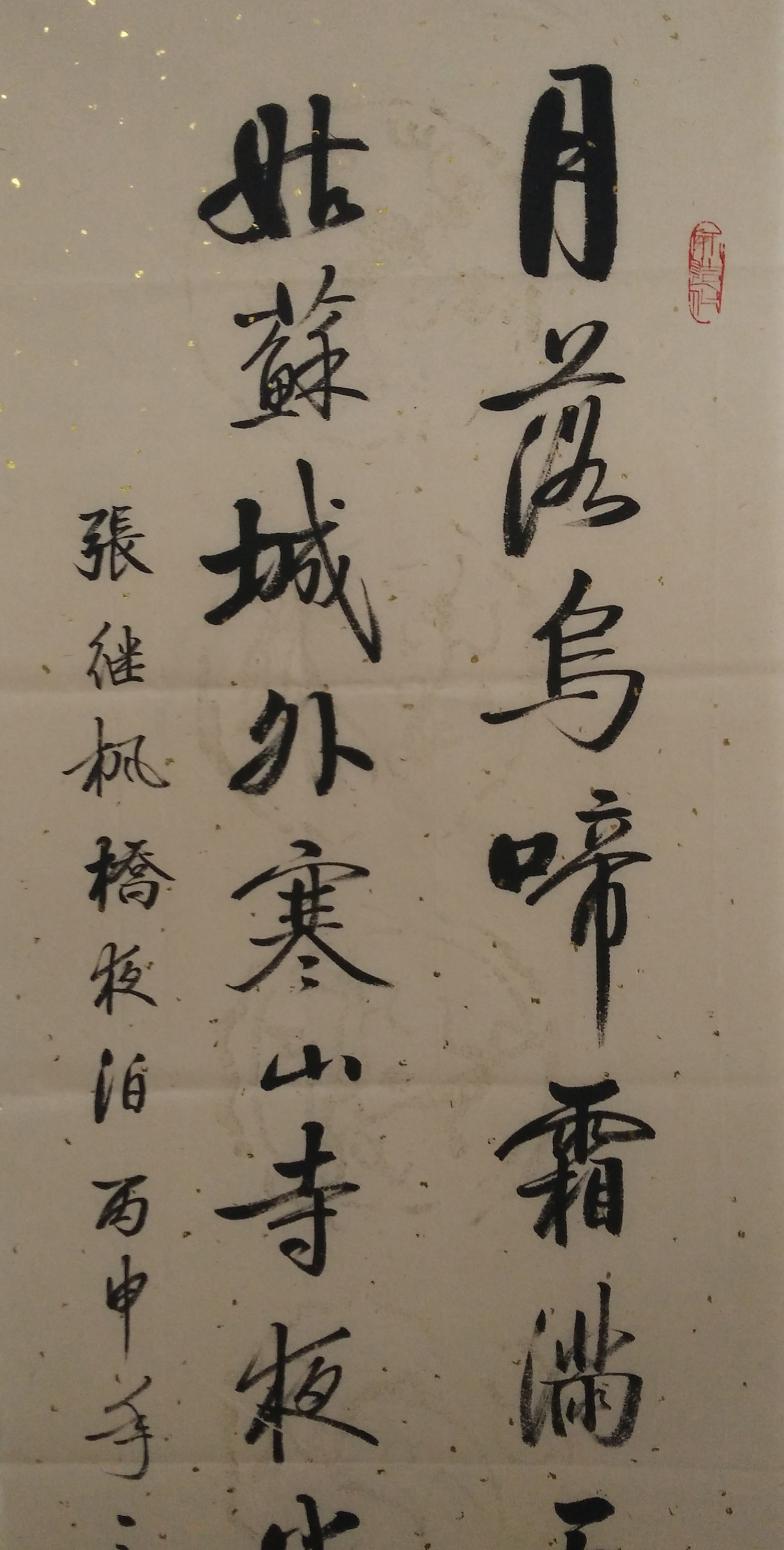 月落烏啼霜滿天
姑蘇城外寒山寺夜半
張继枫橋夜泊 丙申年